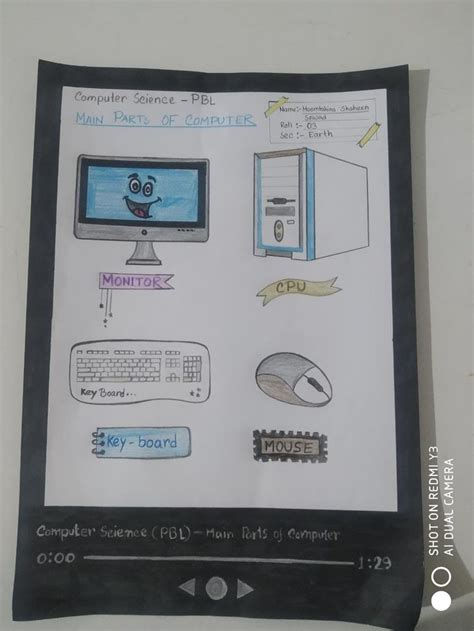 Computer Science - PBL
MAIN PARTS OF COMPUTER
Name:- Shaheen
Roll :- 03
Sec :- Earth
MONITOR
CPU
Key Board...
Key-board
MOUSE
Computer Science (PBL) - Main Parts of Computer
0:00
1:29
SHOT ON REDMI Y3
AI DUAL CAMERA